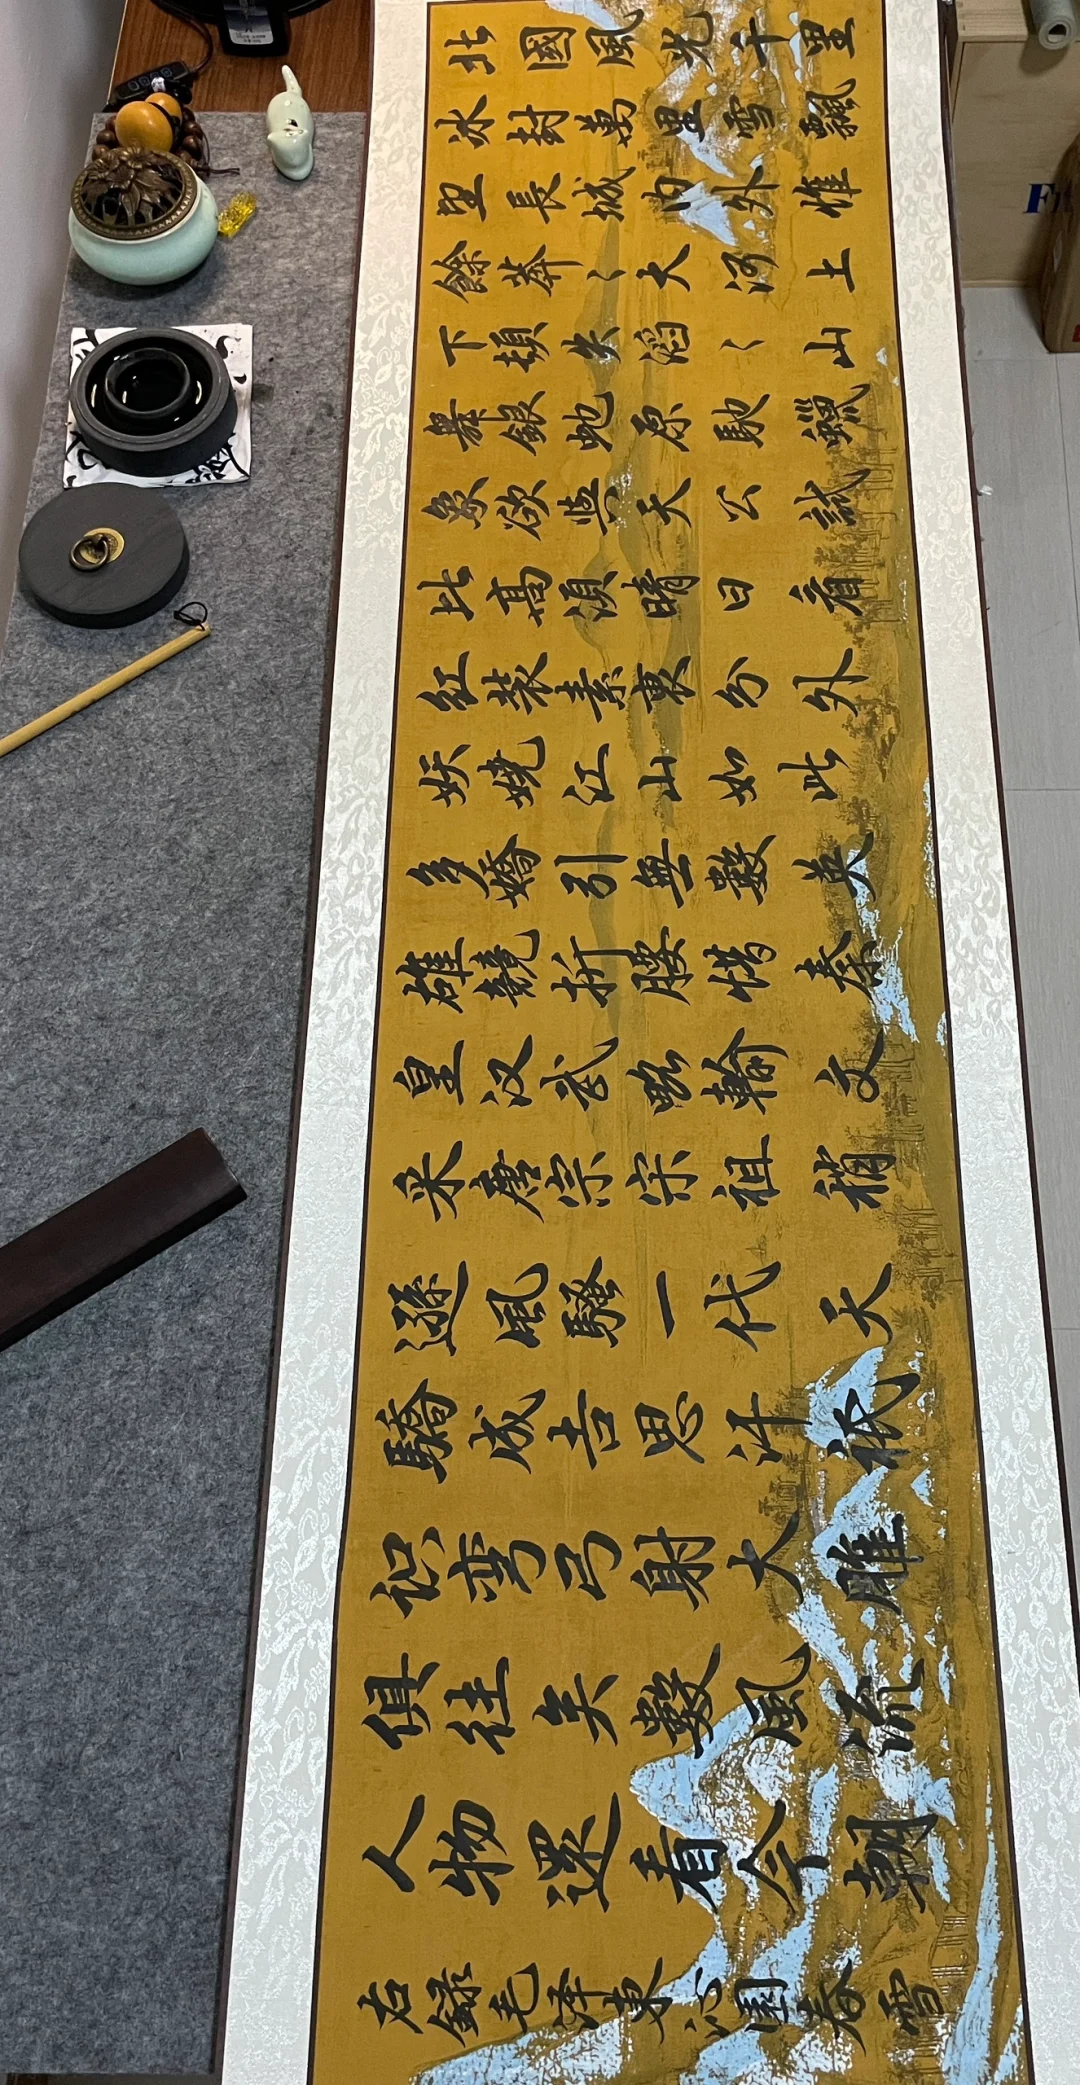 北國風光千里
冰封萬里雪飄
望長城内外惟
餘莽〻大河上
下頓失滔〻山
舞銀蛇原馳蠟
象欲與天公試
比高須晴日看
紅裝素裹分外
妖嬈江山如此
多嬌引無數英
雄競折腰惜秦
皇汉武略輸文
采唐宗宋祖稍
遜風騷一代天
驕成吉思汗衹
识弯弓射大雕
俱往矣數風流
人物還看今朝
右錄毛泽東沁園春雪